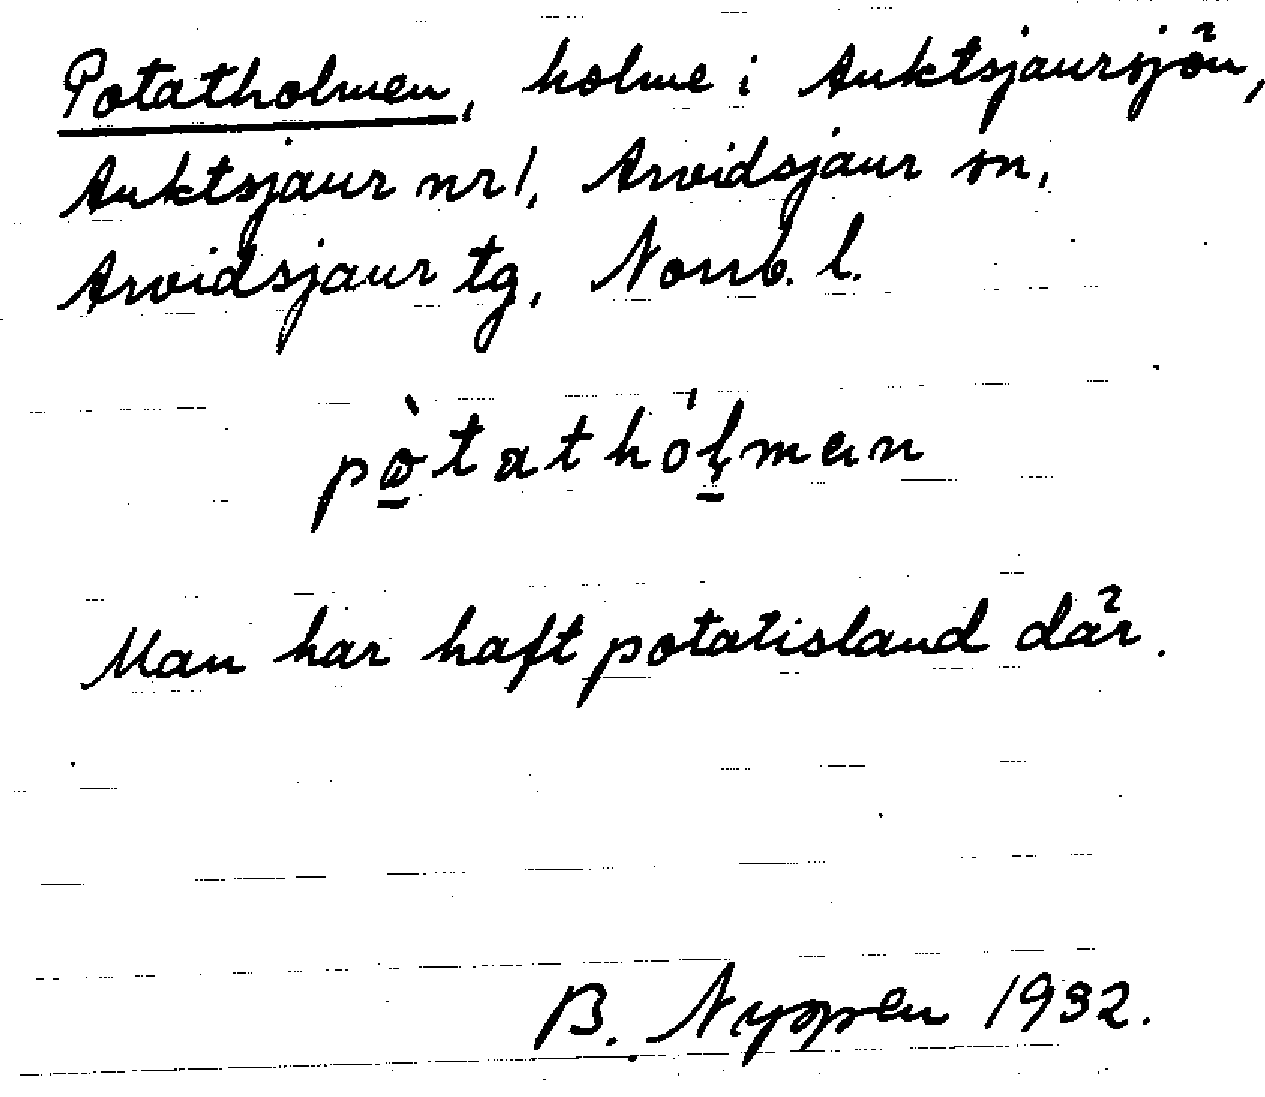 Potatholmen, holme i Auktsjaursjön,
Auktsjaur nr 1, Arvidsjaur sn,
Arvidsjaur tg, Norrb. l.
pòtathólmen
Man har haft potatisland där.
B. Nyppen 1932.